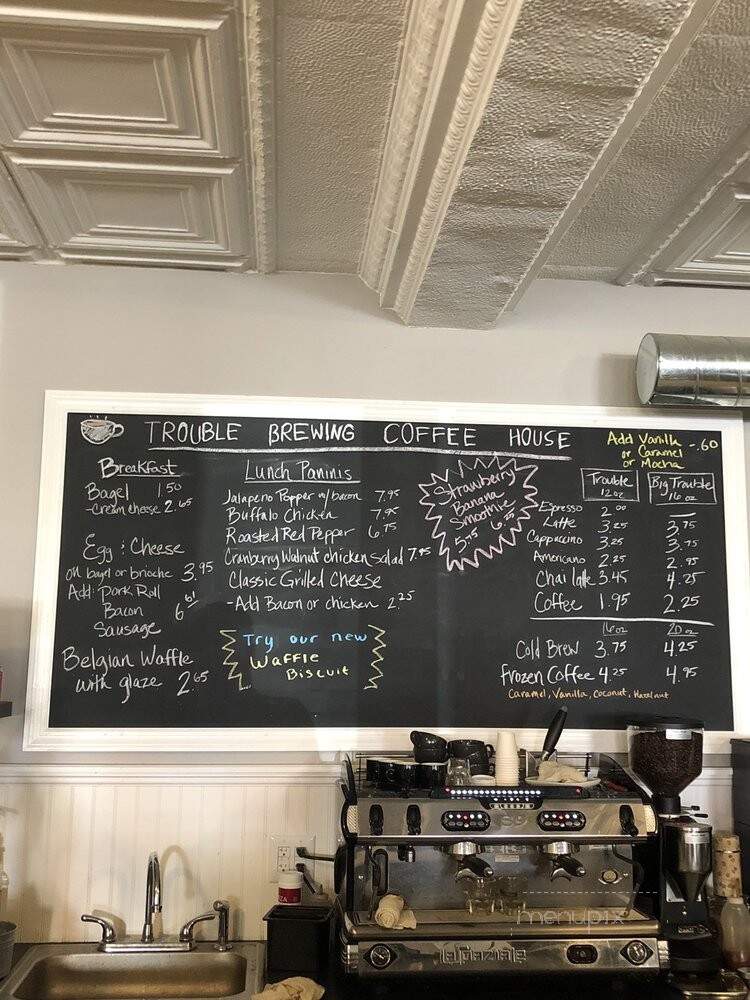 TROUBLE BREWING COFFEE HOUSE
Add Vanilla -.60
or Caramel
or Mocha
Breakfast
Bagel 1.50
-cream cheese 2.65
Egg : Cheese
on bagel or brioche 3.95
Add: Pork Roll
Bacon
Sausage
Belgian Waffle
with glaze 2.65
Lunch Paninis
Jalapeno Popper w/bacon 7.95
Buffalo Chicken 7.95
Roasted Red Pepper 6.75
Cranberry Walnut chicken salad 7.95
Classic Grilled Cheese
-Add Bacon or chicken 2.25
Try our new
Waffle
Biscuit
Strawberry
Banana
Smoothie
5.75 6.25
Trouble Big Trouble
12oz 16 oz
Espresso 2.00
Latte 3.25 3.75
Cappuccino 3.25 3.75
Americano 2.25 2.95
Chai latte 3.45 4.25
Coffee 1.95 2.25
16oz 20oz
Cold Brew 3.75 4.25
Frozen Coffee 4.25 4.95
Caramel, Vanilla, Coconut, Hazelnut
la spaziale
menupix